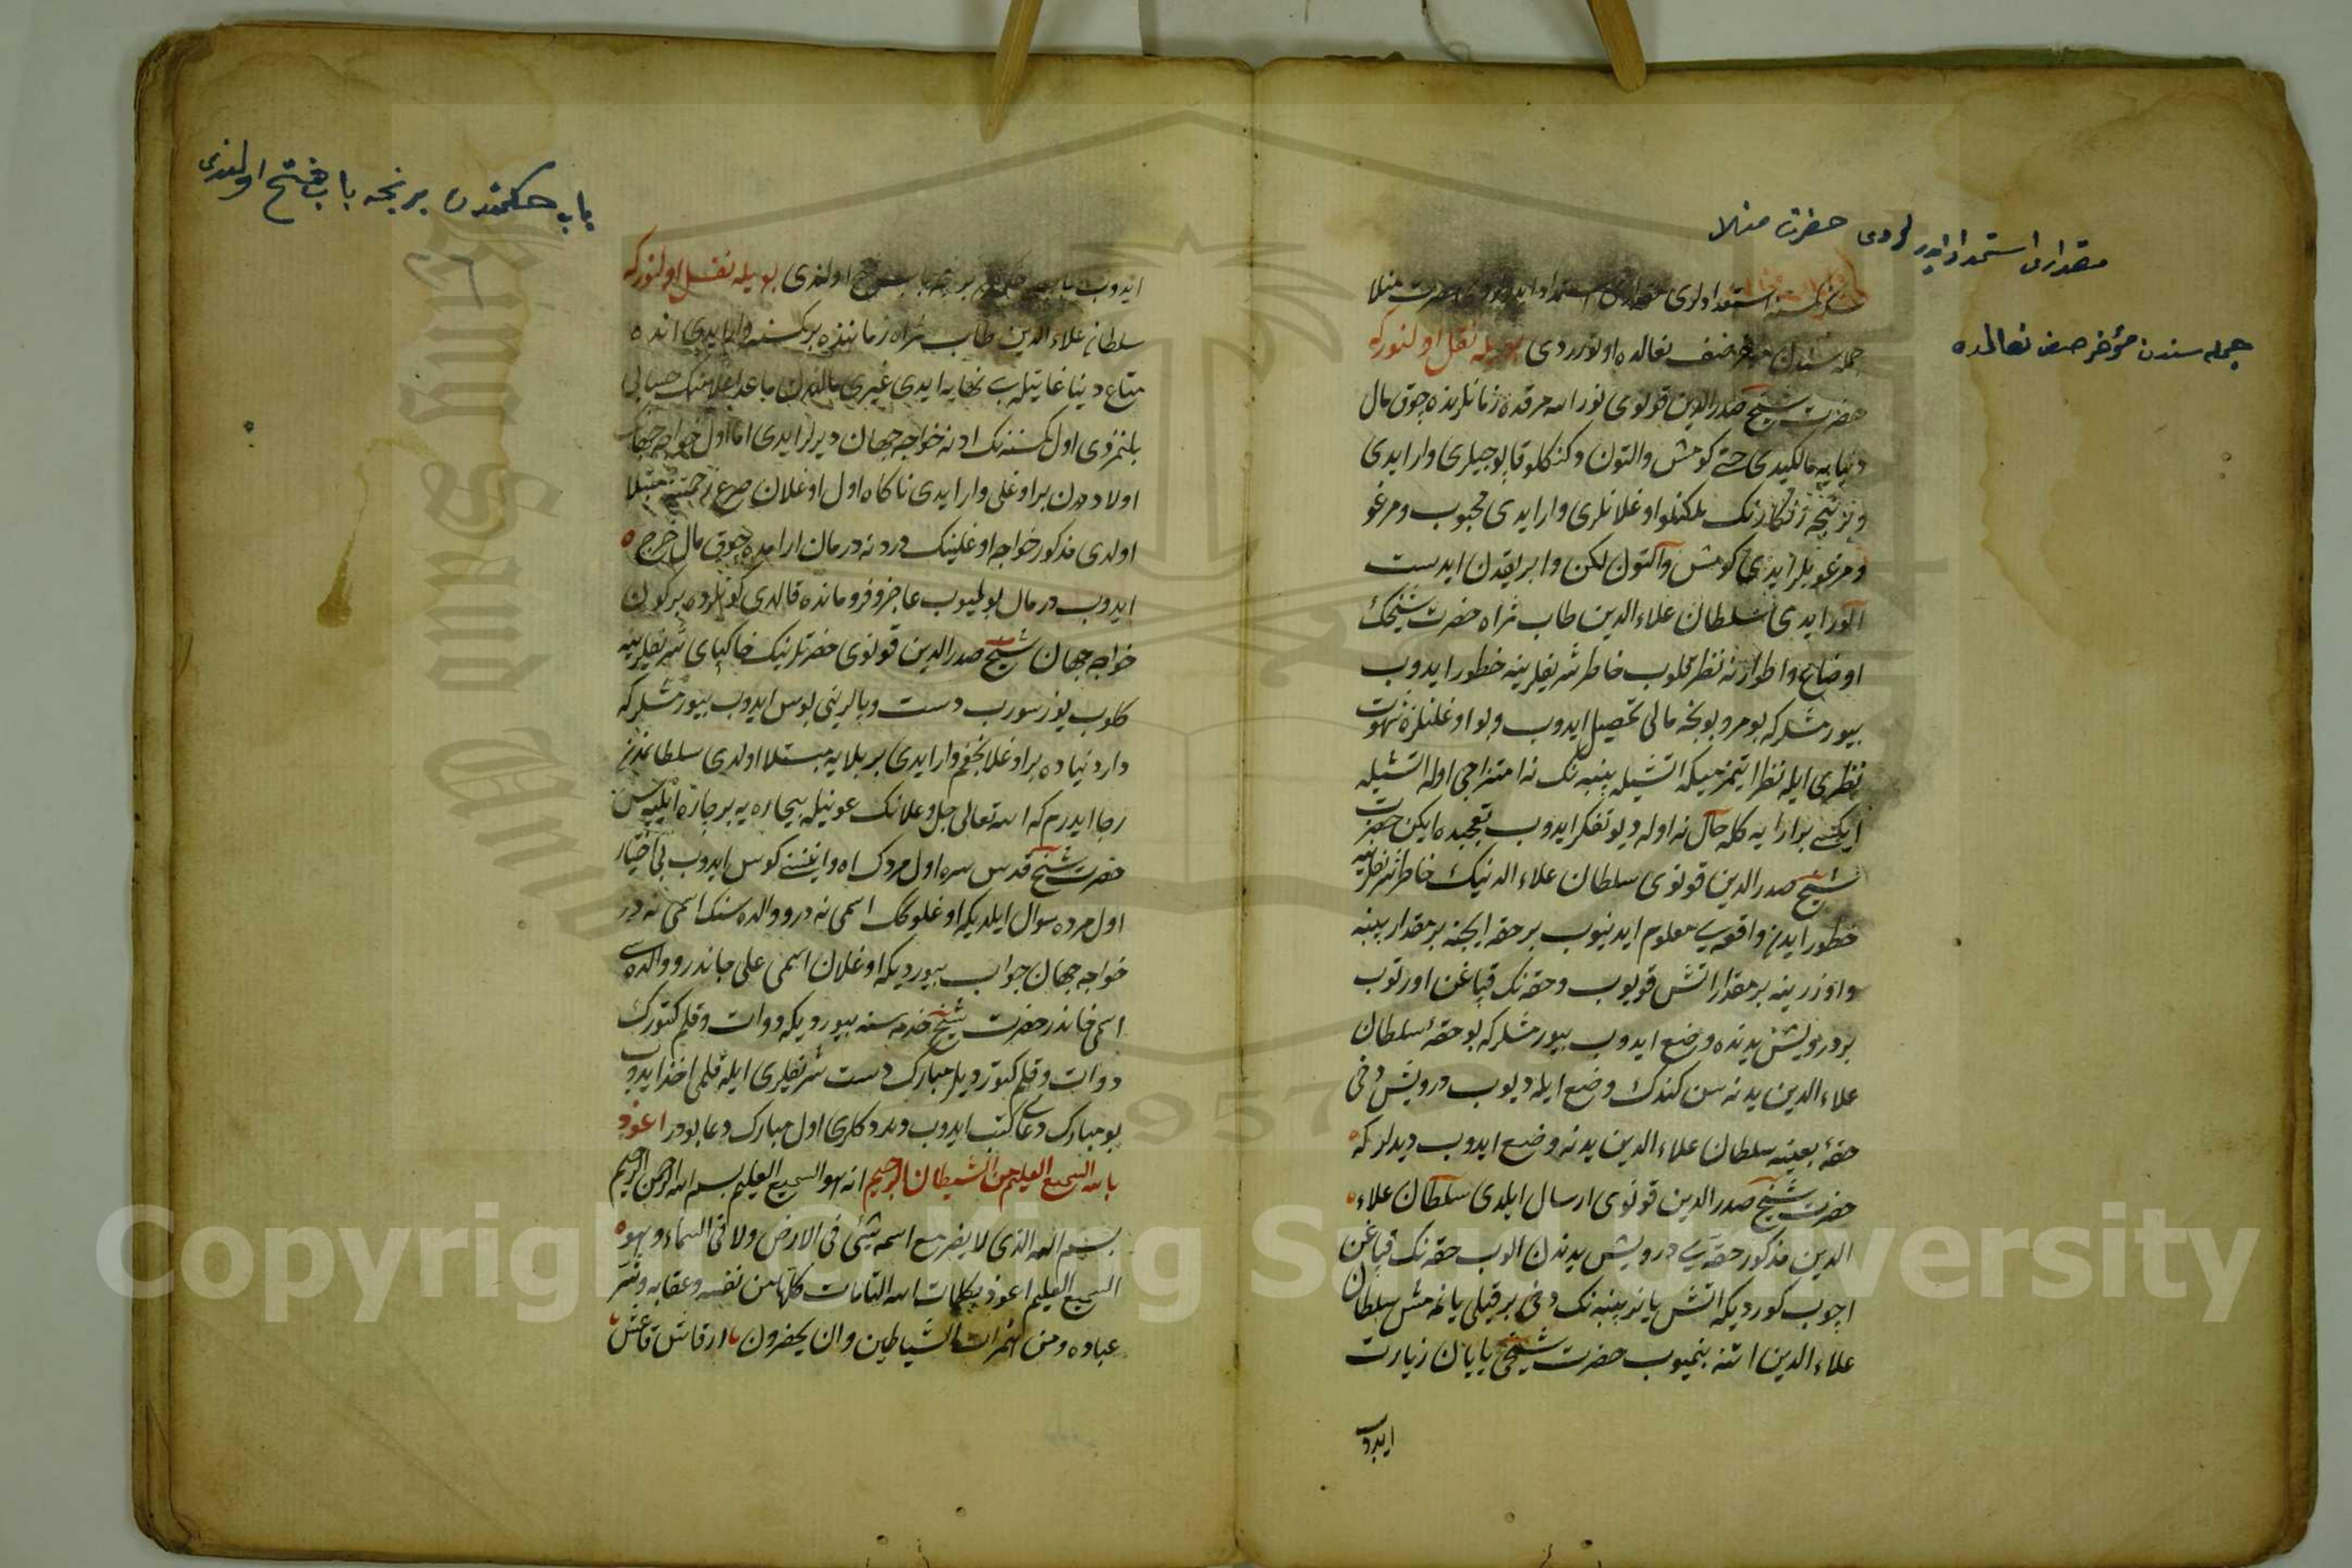 مقداری استمداد ایدرلردی حضرت منلا
جمله سندن مؤخر صف نعالده
هر کسنه استعدادلری مقداری استمداد ایدرلردی حضرت منلا
جمله سندن مؤخر صف نعالده اوتوردی بویله نقل اولنورکه
حضرت شیخ صدرالدین قونوی نور الله مرقده زمانلرنده چوق مال
دنیایه مالکیدی حتی کومش والتون
ونیچه اوغلانلری وار ایدی محبوب ومرغو
ومرغوبلر ایدی کومش والتون لکن وابریقدن ابدست
الور ایدی سلطان علاء الدین طاب ثراه حضرت شیخک
اوضاع واطوارنه نظر قلوب خاطر شریفلرینه خطور ایدوب
بیورمشلرکه بو مرد بونجه مالی تحصیل ایدوب وبو اوغلنلره شهوت
نظری ایله نظر ایتمزمیکه اتشیله پنبه نک نه امتزاجی اوله اتشیله
ایکسی بر ارایه کله حال نه اوله دیو تفکر ایدوب تعجبده ایکن حضرت
شیخ صدرالدین قونوی سلطان علاء الدینک خاطر شریفلرینه
خطور ایدن واقعه یی معلوم ایدنیوب بر حقه ایچنه بر مقدار پنبه
واوزرینه بر مقدار اتش قویوب وحقه نک قپاغن اورتوب
بر درویش یدنده وضع ایدوب بیورمشلرکه بو حقۀ سلطان
علاء الدین یدنه سن کندک وضع ایله دیوب درویش دخی
حقۀ بعینه سلطان علاء الدین یدنه وضع ایدوب دیدلرکه
حضرت شیخ صدرالدین قونوی ارسال ایلدی سلطان علاء
الدین مذکور حقه یی درویش یدندن الوب حقه نک قپاغن
اچوب کوردیکه اتش یانر پنبه نک دخی بر قیلی یانمه مش سلطان
علاء الدین اتنه بنمیوب حضرت شیخی یایان زیارت
ایدوب
باب حکمتدن بر نجه باب فتح اولندی
ایدوب باب حکمتدن بر نجه باب فتح اولندی بویله نقل اولنورکه
سلطان علاء الدین طاب ثراه زماننده بر کسنه وار ایدی انده
متاع دنیا غایتله بی نهایه ایدی غیری مالندن ماعدا حسابی
بلنمزدی اول کسنه نک ادنه خواجه جهان دیرلر ایدی اما اول خواجه جهانک
اولاددن بر اوغلی وار ایدی ناکاه اول اوغلان صرع زحمتنه مبتلا
اولدی مذکور خواجه اوغلینک دردنه درمان ارامده چوق مال خرج
ایدوب درمان بولمیوب عاجز وفرومانده قالدی کونلرده بر کون
خواجه جهان شیخ صدرالدین قونوی حضرتلرینک خاکپای شریفلرینه
کلوب یوز سورب دست وپالرینی بوس ایدوب بیورمشلرکه
دار دنیاده بر اوغلانجغم وار ایدی بر بلایه مبتلا اولدی سلطانمدن
رجا ایدرم که الله تعالی جل وعلانک عونیله بیچاره یه بر چاره ایلیه سن
حضرت شیخ قدس سره اول مردک اه وانینی کوش ایدوب بی اختیار
اول مرده سوال ایلدیکه اوغلوکک اسمی نه در ووالده سنک اسمی نه در
خواجه جهان جواب بیوردیکه اوغلان اسمی علی جاندر ووالده سی
اسمی خاندر حضرت شیخ خدمه سنه بیوردیکه دوات وقلم کتورک
دوات وقلم کتوردیلر مبارک دست شریفلری ایله قلمی اخذ ایدوب
بو مبارک دعای کتب ایدوب ویردکلری اول مبارک دعا بودر اعوذ
بالله السمیع العلیم من الشیطان الرجیم انه هو السمیع العلیم بسم الله الرحمن الرحیم
بسم الله الذی لا یضر مع اسمه شئ فی الارض ولا فی السماء وهو
السمیع العلیم اعوذ بکلمات الله التامات کلها من نفسه وعقابه وشر
عباده ومن همزات الشیاطین وان یحضرون یا ارقاش قاعش
Copyright © King Saud University
1957